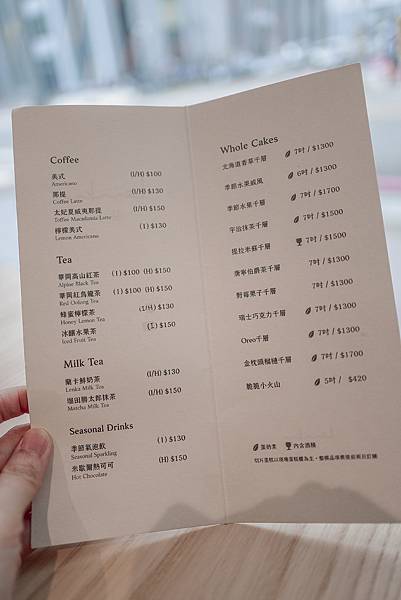 Coffee
美式 (I/H) $100
Americano
那提 (I/H) $130
Coffee Latte
太妃夏威夷那提 (I/H) $150
Toffee Macadamia Latte
檸檬美式 (I) $130
Lemon Americano
Tea
華岡高山紅茶 (I) $100 (H) $150
Alpine Black Tea
華岡紅烏龍茶 (I) $100 (H) $150
Red Oolong Tea
蜂蜜檸檬茶 (I/H) $130
Honey Lemon Tea
冰釀水果茶 (I) $150
Iced Fruit Tea
Milk Tea
蘭卡鮮奶茶 (I/H) $130
Lenka Milk Tea
堀田勝太郎抹茶 (I/H) $150
Matcha Milk Tea
Seasonal Drinks
季節氣泡飲 (I) $130
Seasonal Sparkling
米歇爾熱可可 (H) $150
Hot Chocolate
Whole Cakes
北海道香草千層 7吋 / $1300
季節水果戚風 6吋 / $1300
季節水果千層 7吋 / $1700
宇治抹茶千層 7吋 / $1500
提拉米蘇千層 7吋 / $1500
唐寧伯爵茶千層 7吋 / $1300
野莓果子千層 7吋 / $1300
瑞士巧克力千層 7吋 / $1300
Oreo千層 7吋 / $1300
金枕頭榴槤千層 7吋 / $1700
脆脆小火山 5吋 / $420
蛋奶素 內含酒精
切片蛋糕以現場蛋糕櫃為主,整模品項需提前兩日訂購